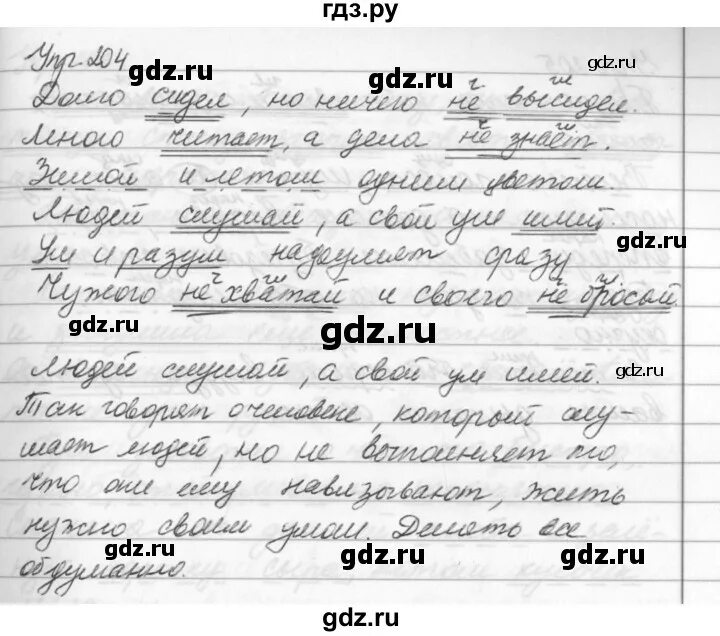 гдз.ру
Упр. 204
gdz.ru gdz.ru gdz.ru
ч гл
Долго сидел, но ничего не высидел.
ч гл
Много читает, а дела не знает.
Зимой и летом одним цветом.
Людей слушай, а свой ум имей.
gdz.ru gdz.ru gdz.ru
Ум и разум надоумят сразу
ч гл ч гл
Чужого не хватай и своего не бросай.
gdz.ru gdz.ru
gdz.ru
Людей слушай, а свой ум имей.
gdz.ru
Так говорят о человеке, который слу-
gdz.ru gdz.ru
шает людей, но не выполняет то,
что они ему навязывают, жить
gdz.ru gdz.ru
нужно своим умом. Делать все
gdz.ru gdz.ru
обдуманно.
gdz.ru